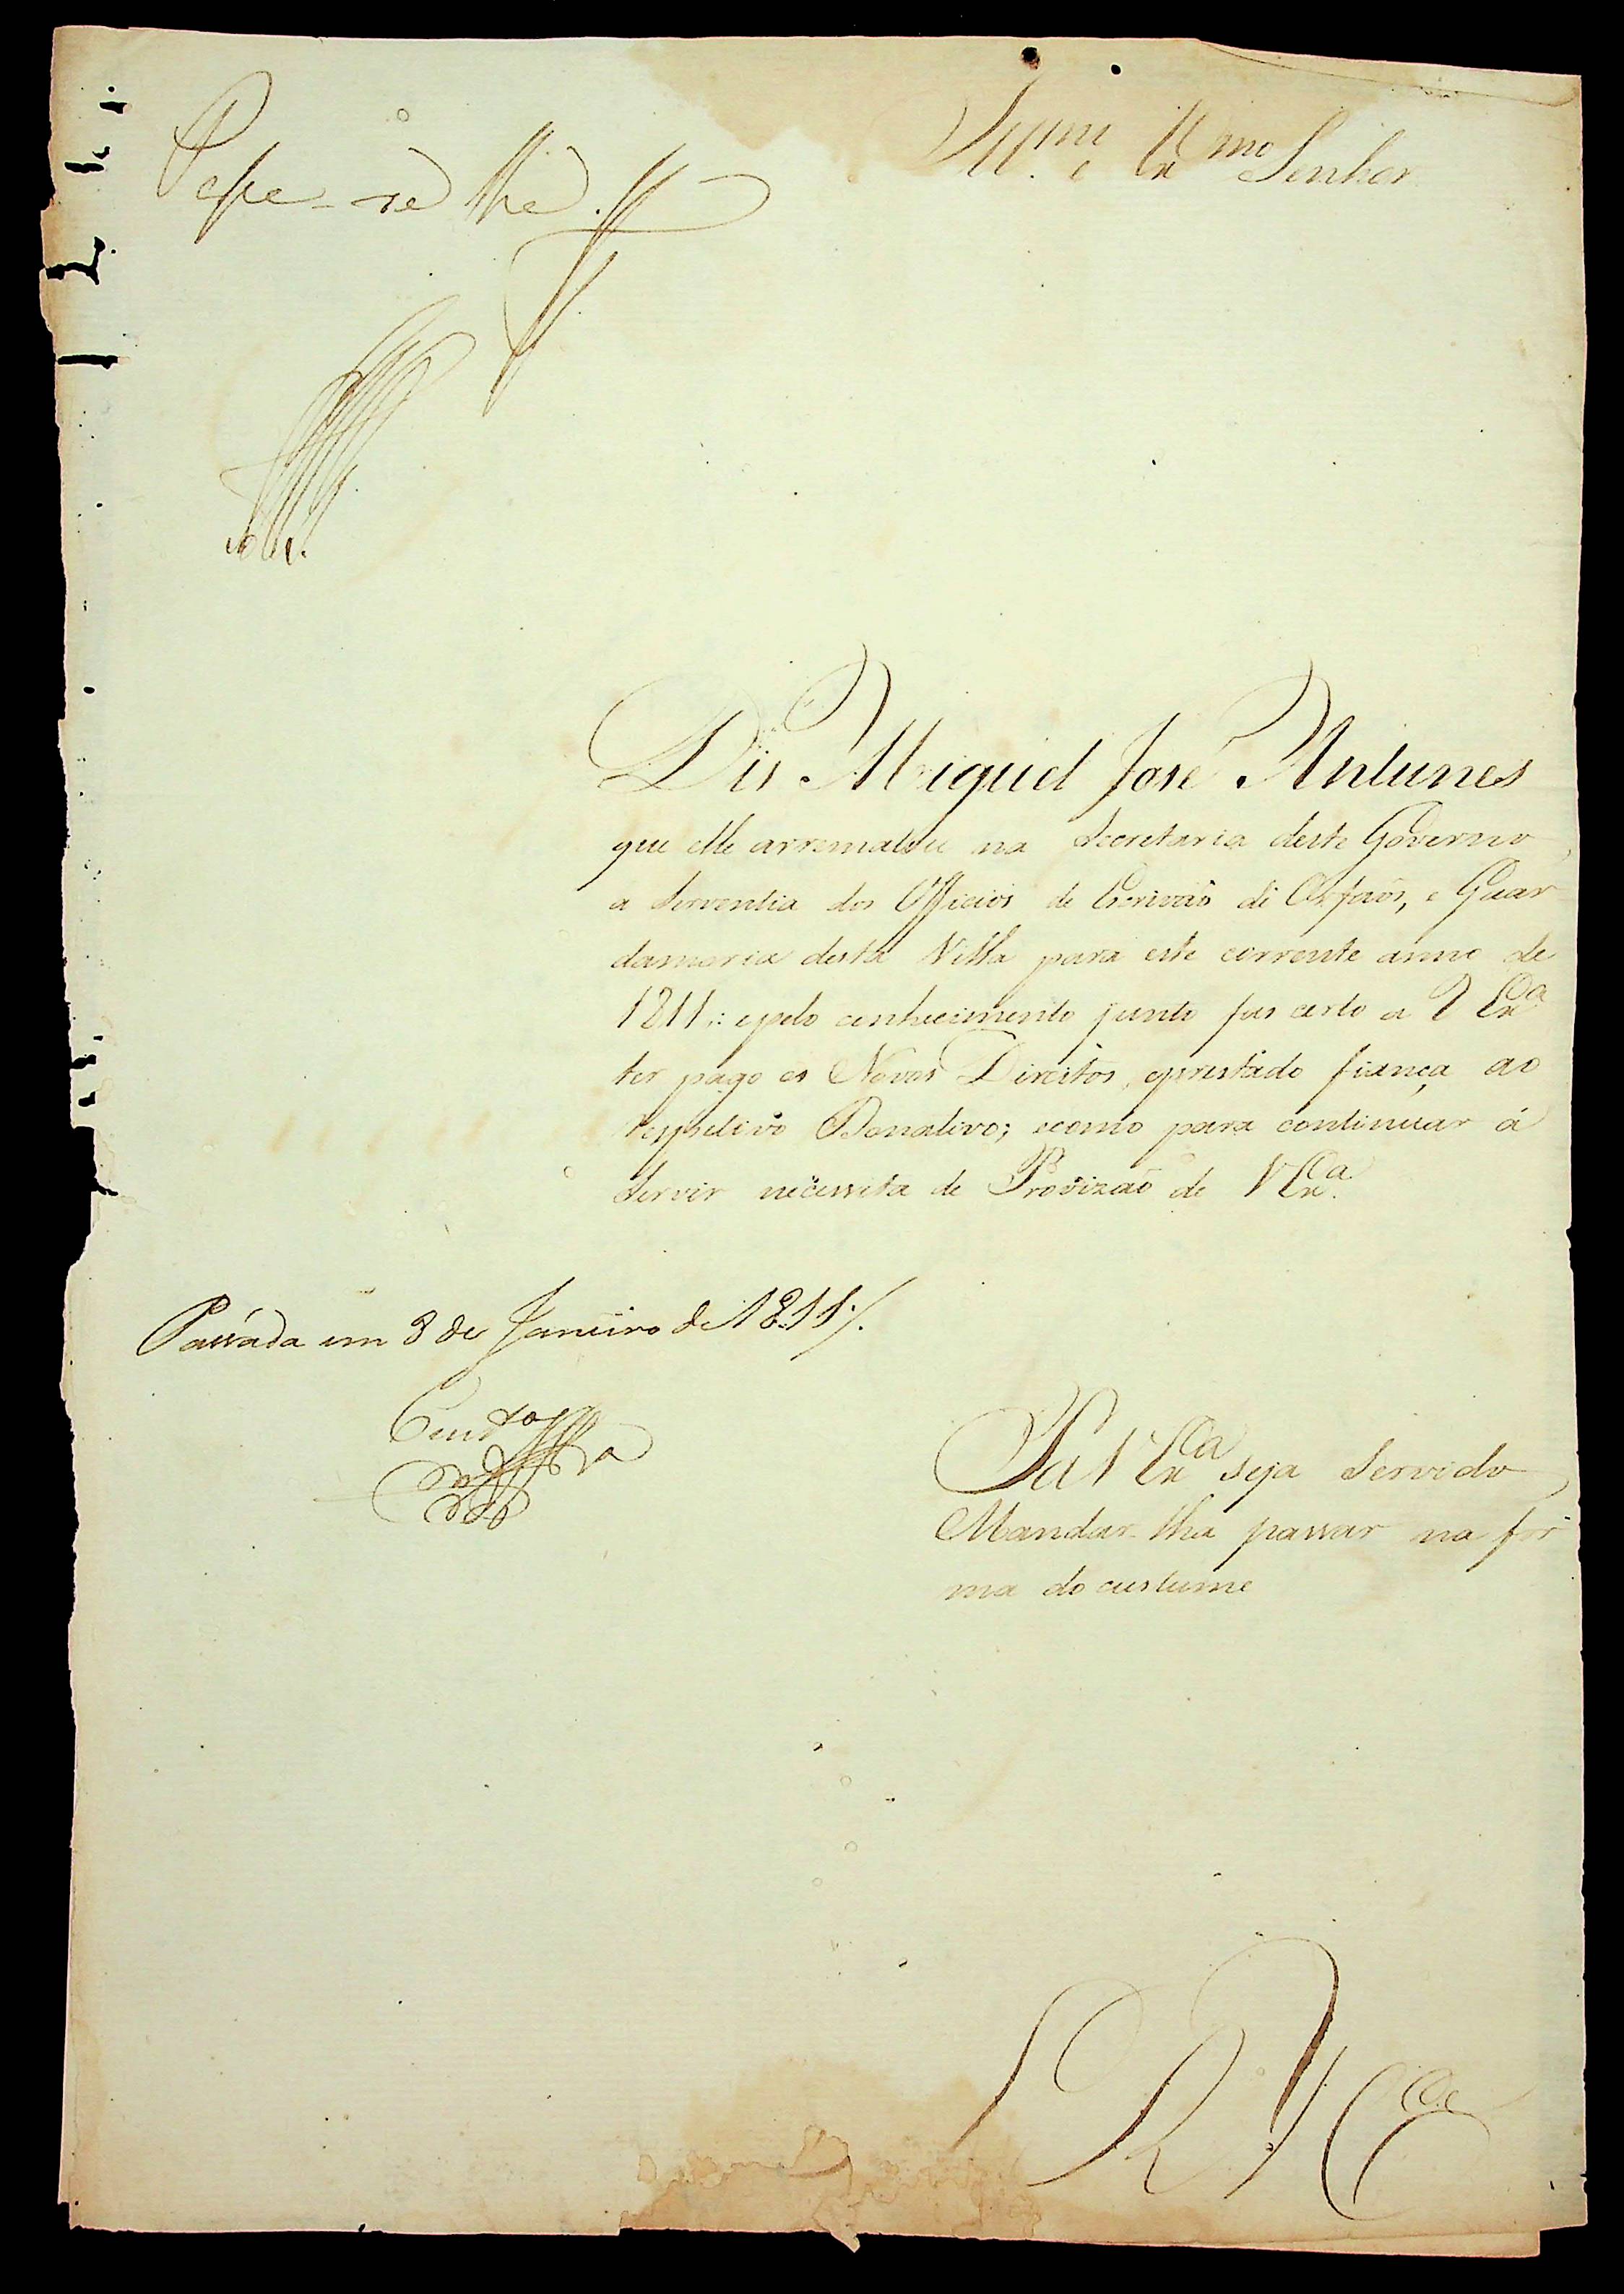 Illmo. e Exmo Senhor
Passe-se lhe.
Dis Miguel José Antunes
que elle arrematou na Secretaria deste Governo
a Serventia dos Officios de Escrivão de Orfãos, e Guar
damoria desta Villa para este corrente anno de
1811,: epelo conhecimento junto fas certo a V Exa
ter pago os Novos Direitos, eprestado fiança ao
respetivo Donativo; ecomo para continuar á
Servir neçessita de Provizão de V Exa.
Passáda em 8 de Janeiro de 1811./.
Pa V Exa seja Servido
Mandar-lha passar na for
ma do custume
E R Mce